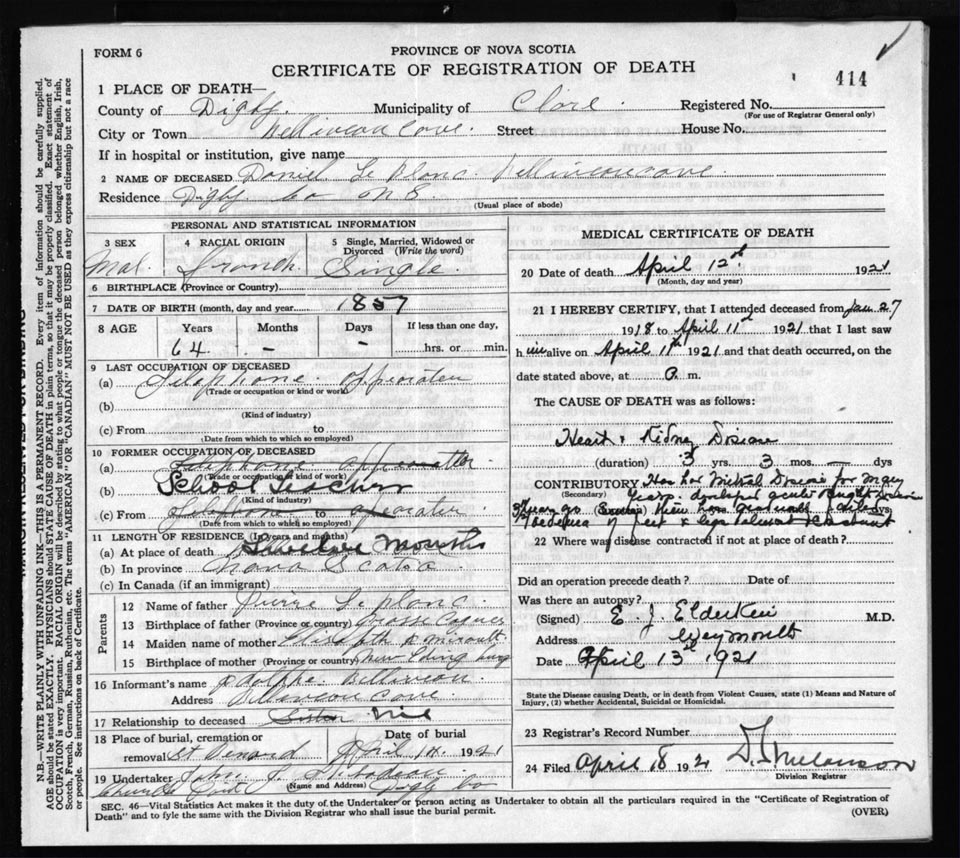 FORM 6
PROVINCE OF NOVA SCOTIA
CERTIFICATE OF REGISTRATION OF DEATH
414
1 PLACE OF DEATH—
County of Digby Municipality of Clare Registered No.
(For use of Registrar General only)
City or Town Belliveau Cove Street House No.
If in hospital or institution, give name
2 NAME OF DECEASED Daniel Le Blanc Belliveaucove
Residence Digby Co N S
(Usual place of abode)
PERSONAL AND STATISTICAL INFORMATION
3 SEX 4 RACIAL ORIGIN 5 Single, Married, Widowed or Divorced (Write the word)
Mal. french Single
6 BIRTHPLACE (Province or Country)
7 DATE OF BIRTH (month, day and year) 1857
8 AGE Years Months Days If less than one day,
64 - - hrs. or min.
9 LAST OCCUPATION OF DECEASED
(a)
(Trade or occupation or kind or work)
(b)
(Kind of industry)
(c) From to
(Date from which to which so employed)
10 FORMER OCCUPATION OF DECEASED
(a)
(Trade or occupation or kind of work)
(b) School
(Kind of industry)
(c)
(Date from which to which so employed)
11 LENGTH OF RESIDENCE (in years and months)
(a) At place of death Months
(b) In province Nova Scotia
(c) In Canada (if an immigrant)
Parents
12 Name of father Pierre Le planc
13 Birthplace of father (Province or country)
14 Maiden name of mother
15 Birthplace of mother (Province or country)
16 Informant's name Belliveau
Address Belliveau Cove
17 Relationship to deceased
18 Place of burial, cremation or removal Date of burial
April 14 1921
19 Undertaker John
(Name and Address) Digby Co
MEDICAL CERTIFICATE OF DEATH
20 Date of death April 12th 1921
(Month, day and year)
21 I HEREBY CERTIFY, that I attended deceased from Jan 27
1918 to April 11th 1921 that I last saw
h im alive on April 11th 1921 and that death occurred, on the
date stated above, at m.
The CAUSE OF DEATH was as follows:
Heart & Kidney Disease
(duration) 3 yrs. 3 mos. — dys
CONTRIBUTORY Has had Mitral Disease for Many
(Secondary) Years.
22 Where was disease contracted if not at place of death?
Did an operation precede death? Date of
Was there an autopsy?
(Signed) E. J. Elderkin M.D.
Address Weymouth
Date April 13th 1921
State the Disease causing Death, or in death from Violent Causes, state (1) Means and Nature of
Injury, (2) whether Accidental, Suicidal or Homicidal.
23 Registrar's Record Number
24 Filed April 18 192
Division Registrar
SEC. 46—Vital Statistics Act makes it the duty of the Undertaker or person acting as Undertaker to obtain all the particulars required in the "Certificate of Registration of
Death" and to fyle the same with the Division Registrar who shall issue the burial permit.
(OVER)
MARGIN RESERVED FOR BINDING
N.B.—WRITE PLAINLY WITH UNFADING INK—THIS IS A PERMANENT RECORD. Every item of information should be carefully supplied.
AGE should be stated EXACTLY. PHYSICIANS should STATE CAUSE OF DEATH in plain terms, so that it may be properly classified. Exact statement of
OCCUPATION is very important. RACIAL ORIGIN will be described by stating to what people or tongue the deceased person belonged whether English, Irish,
Scotch, French, German, Russian, Ruthenian, etc. The terms "AMERICAN" or "CANADIAN" MUST NOT BE USED as they express citizenship but not a race
or people. See instructions on back of Certificate.